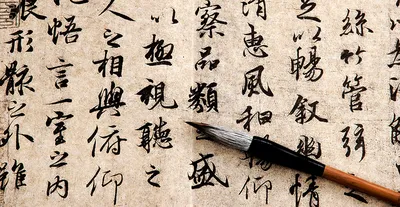 絲竹管弦之
以暢敘幽情
清惠風和暢仰
察品類之盛
以極視聽之
人之相與俯仰
悟言一室之內
浪形骸之外雖